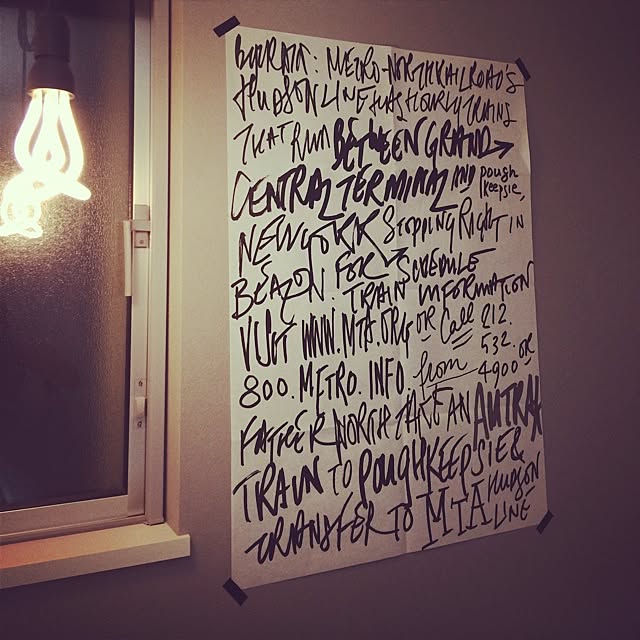 BY TRAIN: METRO-NORTH RAILROAD'S
HUDSON LINE HAS HOURLY TRAINS
THAT RUN BETWEEN GRAND
CENTRAL TERMINAL AND POUGHKEEPSIE,
NEW YORK STOPPING RIGHT IN
BEACON. FOR SCHEDULE
TRAIN INFORMATION
VISIT WWW.MTA.ORG OR Call 212.
532.
4900 OR
800.METRO.INFO. from
FATHER NORTH TAKE AN AMTRAK
TRAIN TO POUGHKEEPSIE &
TRANSFER TO MTA HUDSON
LINE